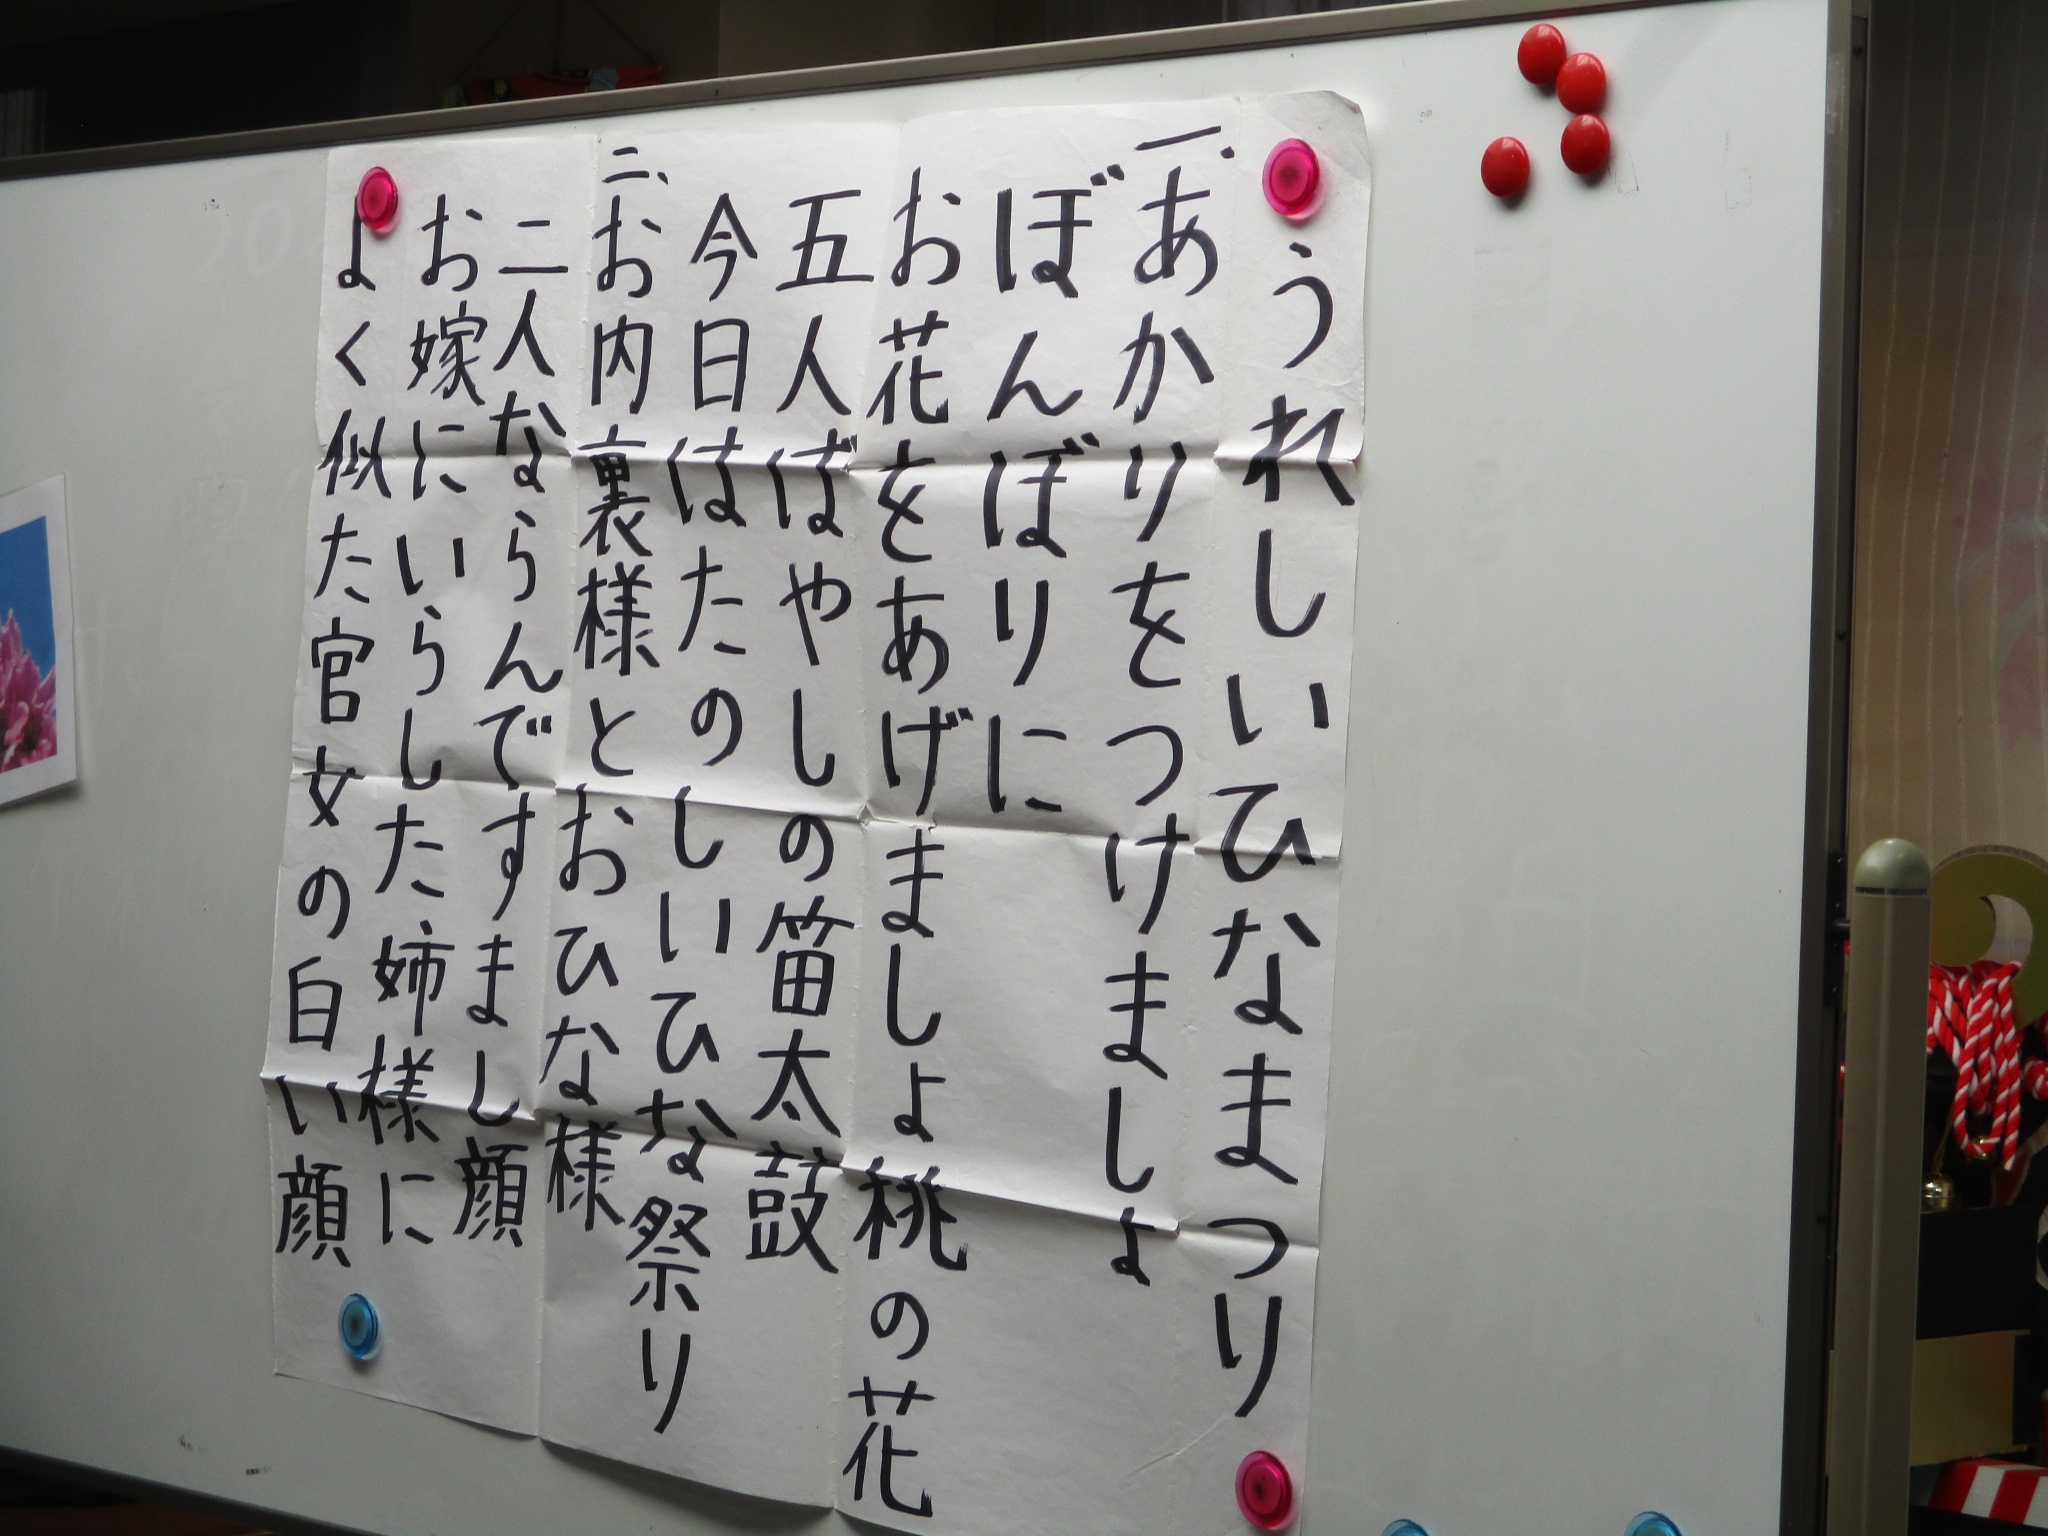 うれしいひなまつり
一、あかりをつけましょ
ぼんぼりに
お花をあげましょ桃の花
五人ばやしの笛太鼓
今日はたのしいひな祭り
二、お内裏様とおひな様
二人ならんですまし顔
お嫁にいらした姉様に
よく似た官女の白い顔